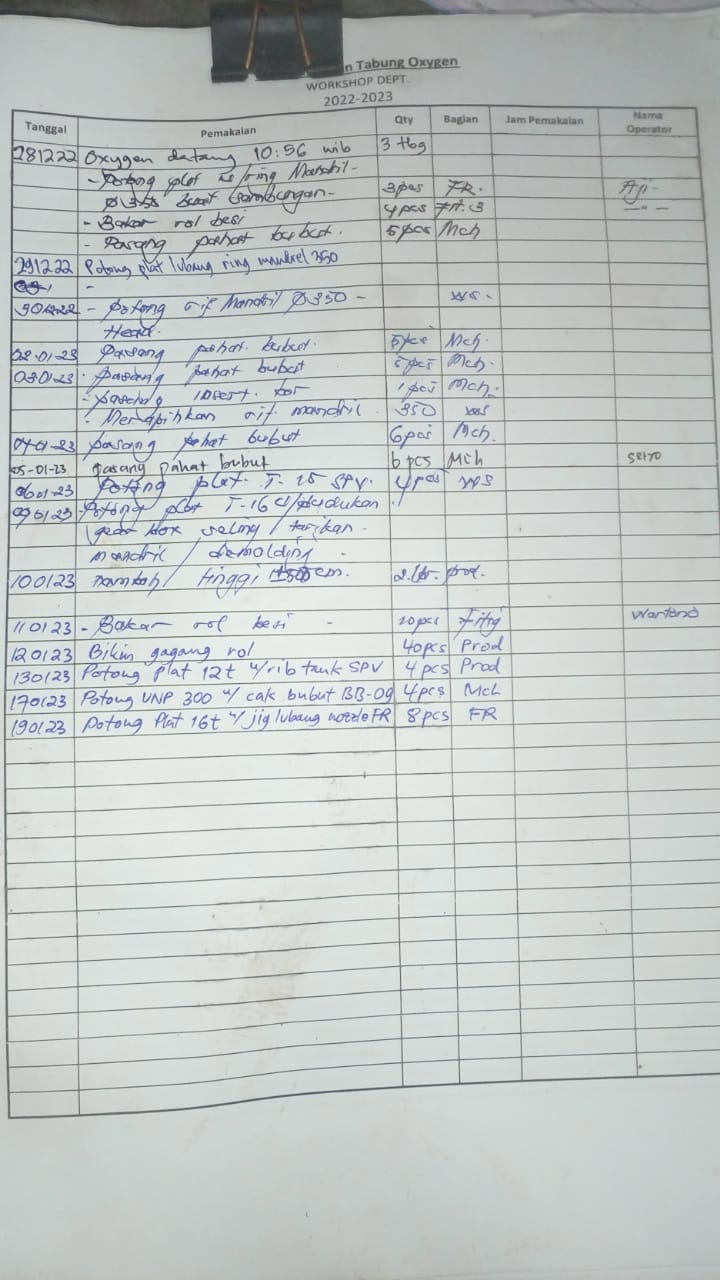 n Tabung Oxygen
WORKSHOP DEPT.
2022-2023
Tanggal Pemakaian Qty Bagian Jam Pemakaian Nama Operator
281222 Oxygen datang 10:56 wib 3 tbg
- Potong plat as/ring Mandril -
Ø 350 buat sambungan - 3pcs FR. Aji -
- Bakar rol besi 4pcs -"-
- Pasang pahat bubut. 5pcs Mch
291222 Potong plat lubang ring mandrel 350
-
301222 - Potong Mandril Ø350 - WS -
Head.
02-01-23 Pasang pahat bubut. 5pcs Mch.
030123 - Pasang pahat bubut 5pcs Mch.
- Pasang insert bor 1pcs Mch.
- Merapihkan mandril 350 WS
04-01-23 pasang pahat bubut 6pcs Mch.
05-01-23 pasang pahat bubut 6pcs Mch
060123 Potong plat. T-15 SPV. 4pcs WS
090123 - Potong plat T-16 u/dudukan
gear box seling / tarikan -
mandril / demolding -
100123 nambah tinggi
110123 - Bakar rol besi - 20pcs
120123 Bikin gagang rol 40pcs Prod
130123 Potong plat 12t u/rib tank SPV 4pcs Prod
170123 Potong UNP 300 u/ cak bubut BB-09 4pcs Mch
190123 Potong Plat 16t u/ jig lubang nozzle FR 8pcs FR